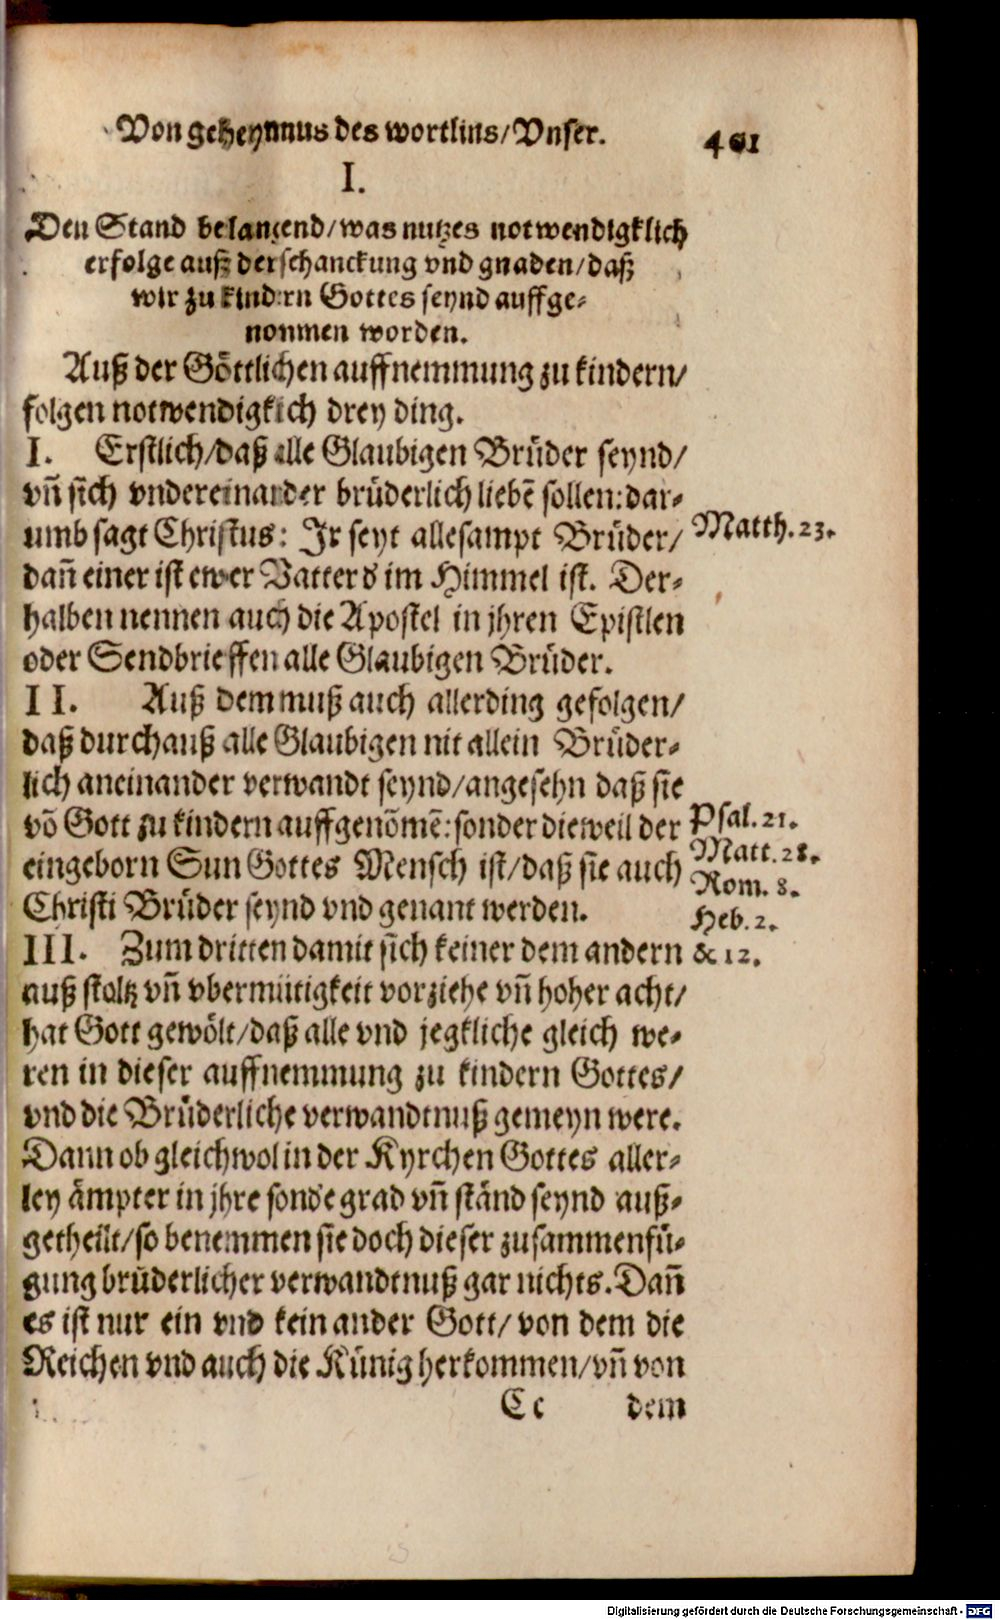 Von geheymnus des wortlins/Vnser. 401
I.
Den Stand belangend/was nutzes notwendigklich
erfolge auß der schanckung vnd gnaden/daß
wir zu kindern Gottes seynd auffge-
nommen worden.
Auß der Göttlichen auffnemmung zu kindern/
folgen notwendigklich drey ding.
I. Erstlich/daß alle Glaubigen Brüder seynd/
vñ sich vndereinander brüderlich liebẽ sollen: dar-
umb sagt Christus: Ir seyt allesampt Brüder/
Matth. 23.
dañ einer ist ewer Vatter d' im Himmel ist. Der-
halben nennen auch die Apostel in jhren Epistlen
oder Sendbrieffen alle Glaubigen Brüder.
II. Auß dem muß auch allerding gefolgen/
daß durchauß alle Glaubigen nit allein Brüder-
lich aneinander verwandt seynd/angesehn daß sie
võ Gott zu kindern auffgenõmẽ: sonder dieweil der
Psal. 21.
eingeborn Sun Gottes Mensch ist/daß sie auch
Matt. 28.
Rom. 8.
Christi Brüder seynd vnd genant werden.
Heb. 2.
III. Zum dritten damit sich keiner dem andern
& 12.
auß stoltz vñ vbermütigkeit vorziehe vñ hoher acht/
hat Gott gewölt/daß alle vnd jegkliche gleich we-
ren in dieser auffnemmung zu kindern Gottes/
vnd die Brüderliche verwandtnuß gemeyn were.
Dann ob gleichwol in der Kyrchen Gottes aller-
ley ämpter in jhre sond'e grad vñ ständ seynd auß-
getheilt/so benemmen sie doch dieser zusammenfü-
gung brüderlicher verwandtnuß gar nichts. Dañ
es ist nur ein vnd kein ander Gott/von dem die
Reichen vnd auch die Künig herkommen/vñ von
Cc dem
Digitalisierung gefördert durch die Deutsche Forschungsgemeinschaft - DFG